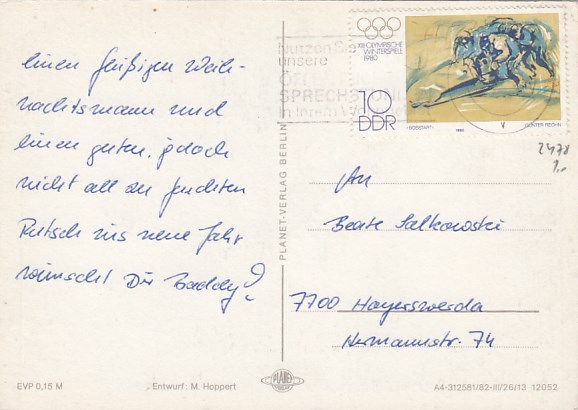 einen fleißigen Weih-
nachtsmann und
einen guten, jedoch
nicht all zu feuchten
Rutsch ins neue Jahr
wünscht Dir Baddy
PLANET-VERLAG BERLIN
Nutzen Sie
unsere
SPRECHSTUN
in Ihrem
XIII. OLYMPISCHE
WINTERSPIELE
1980
10
DDR
1980
GÜNTER RECHN
2478
1,-
An
Beate Salkowski
7700 Hoyerswerda
Hermannstr. 74
EVP 0,15 M
Entwurf: M. Hoppert
PLANET
A4-312581/82-III/26/13 12052